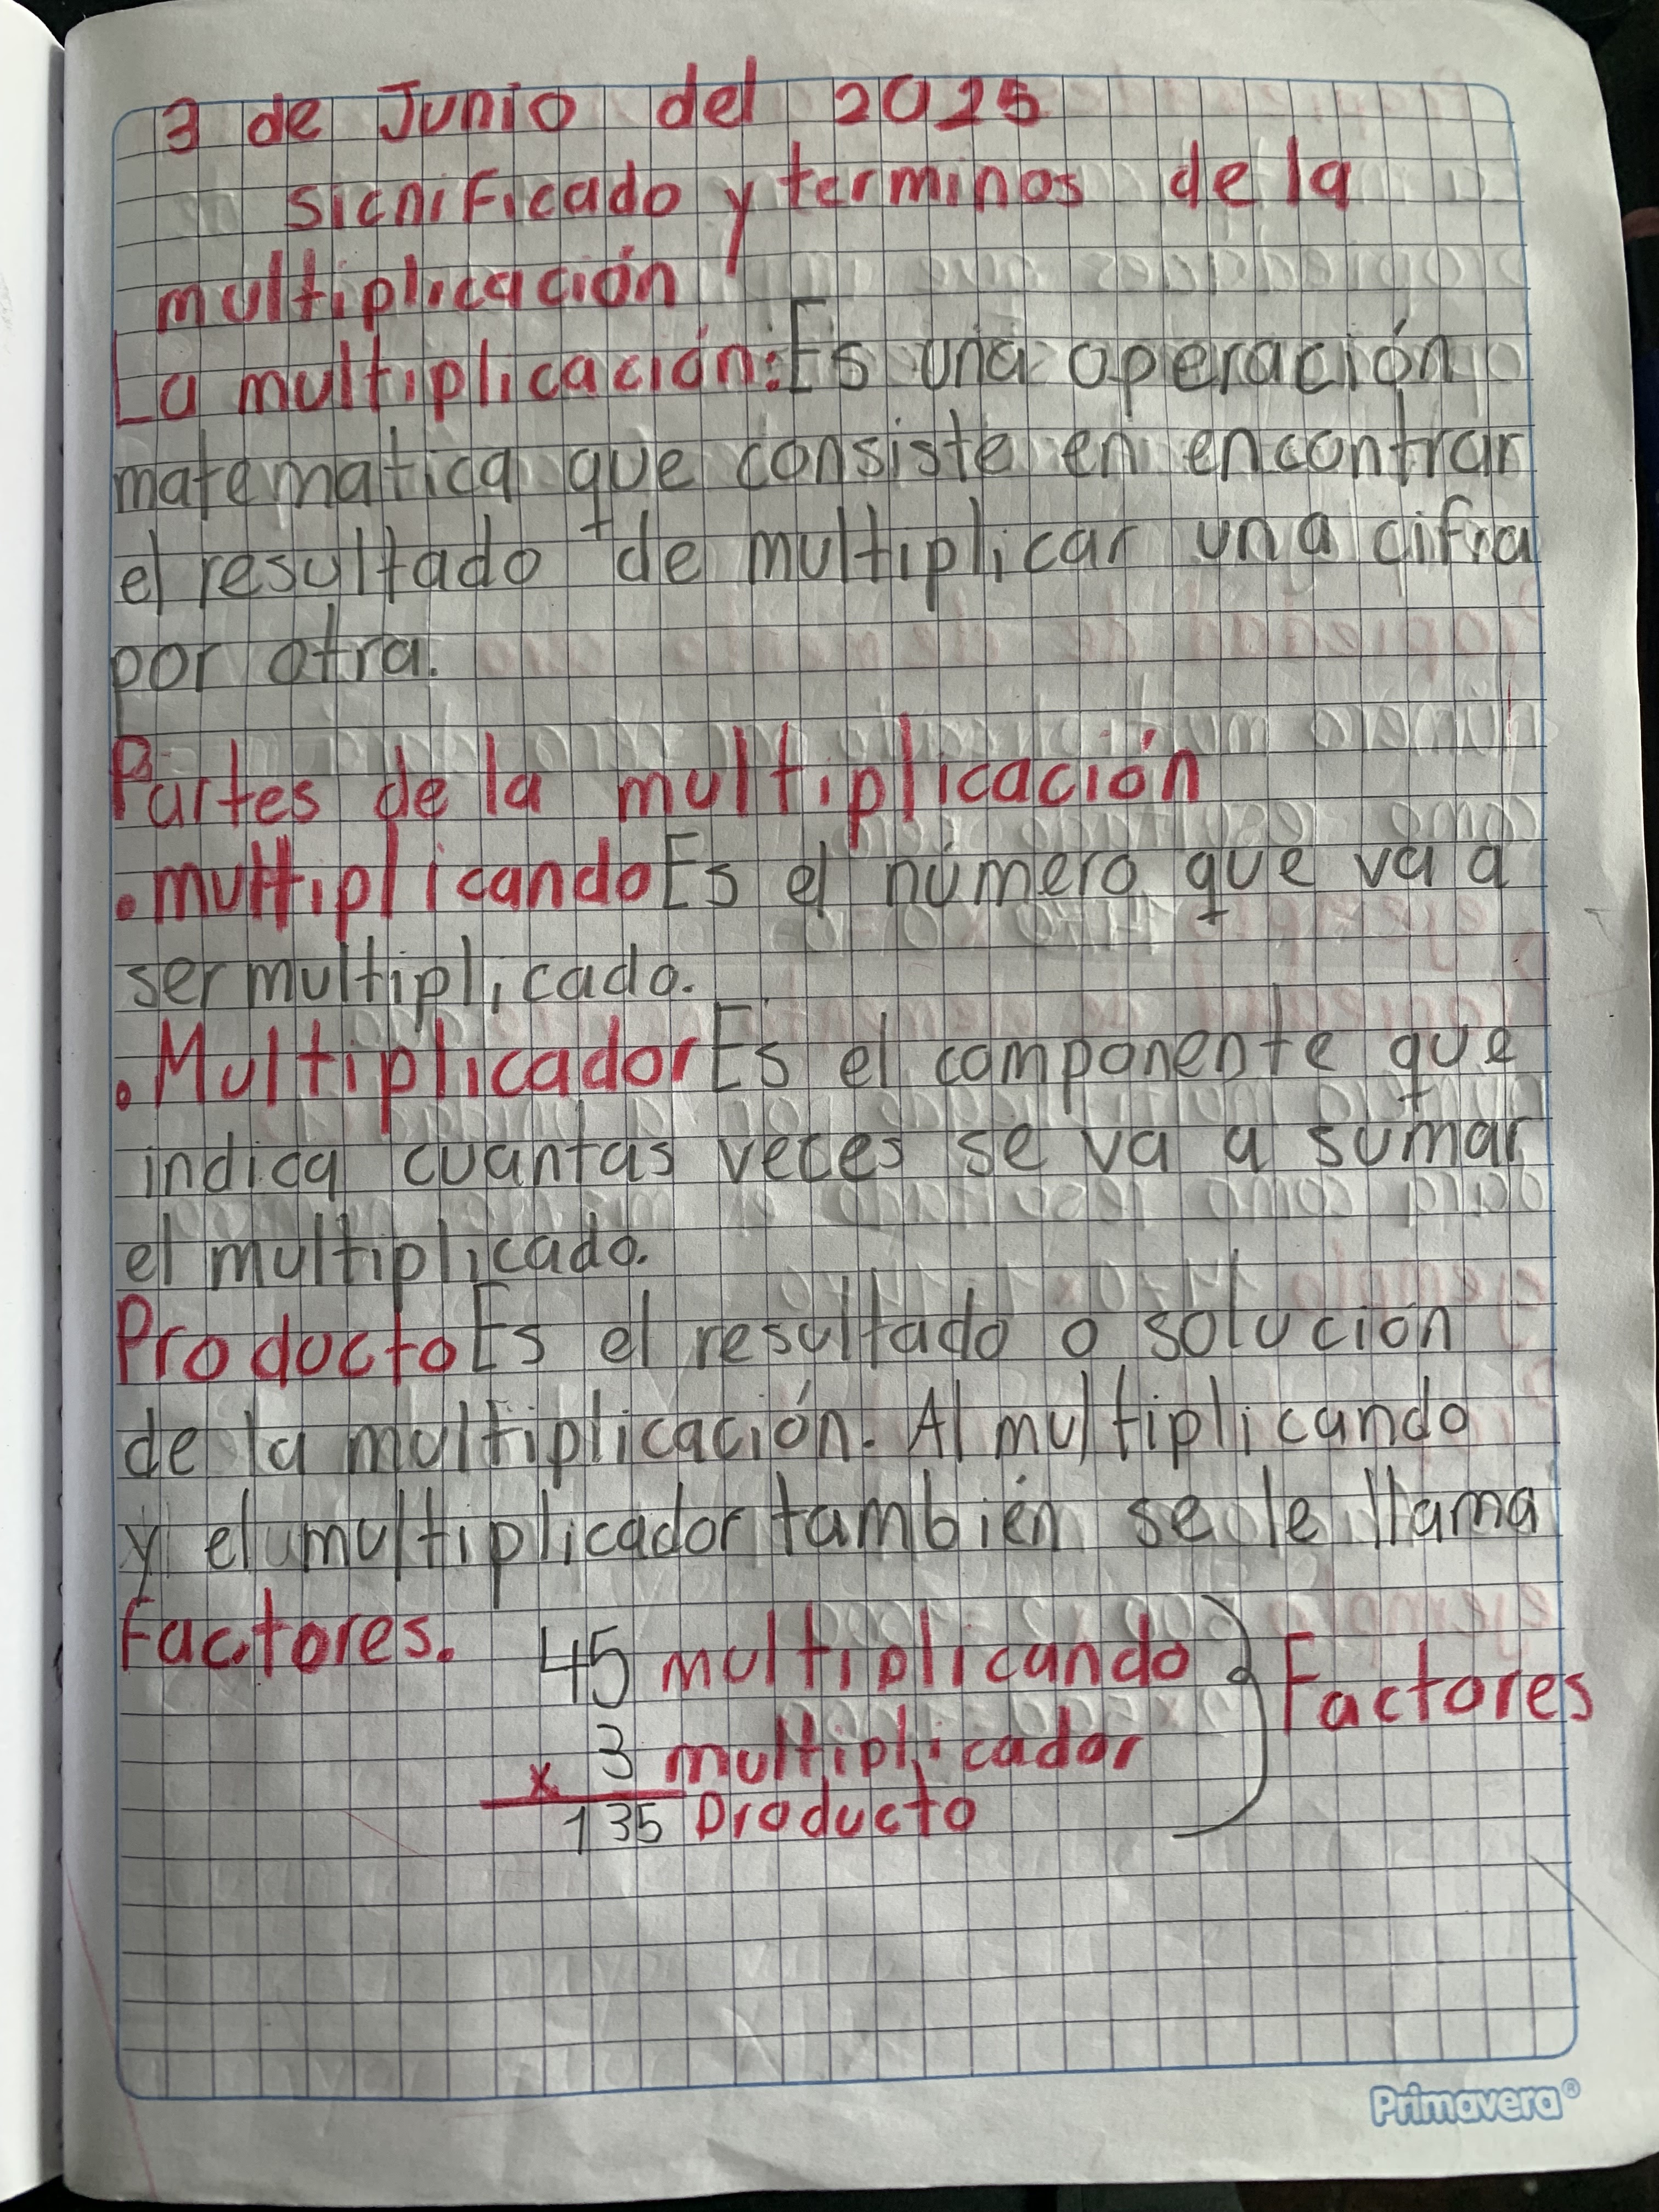 3 de Junio del 2025
sicnificado y terminos de la
multiplicación
La multiplicación: Es una operación
matematica que consiste en encontrar
el resultado de multiplicar una cifra
por otra.
Partes de la multiplicación
• multiplicando Es el número que va a
ser multiplicado.
• Multiplicador Es el componente que
indica cuantas veces se va a sumar
el multiplicado.
Producto Es el resultado o solución
de la multiplicación. Al multiplicando
y el multiplicador también se le llama
Factores.
45 multiplicando
Factores
x 3 multiplicador
135 Producto
Primavera®